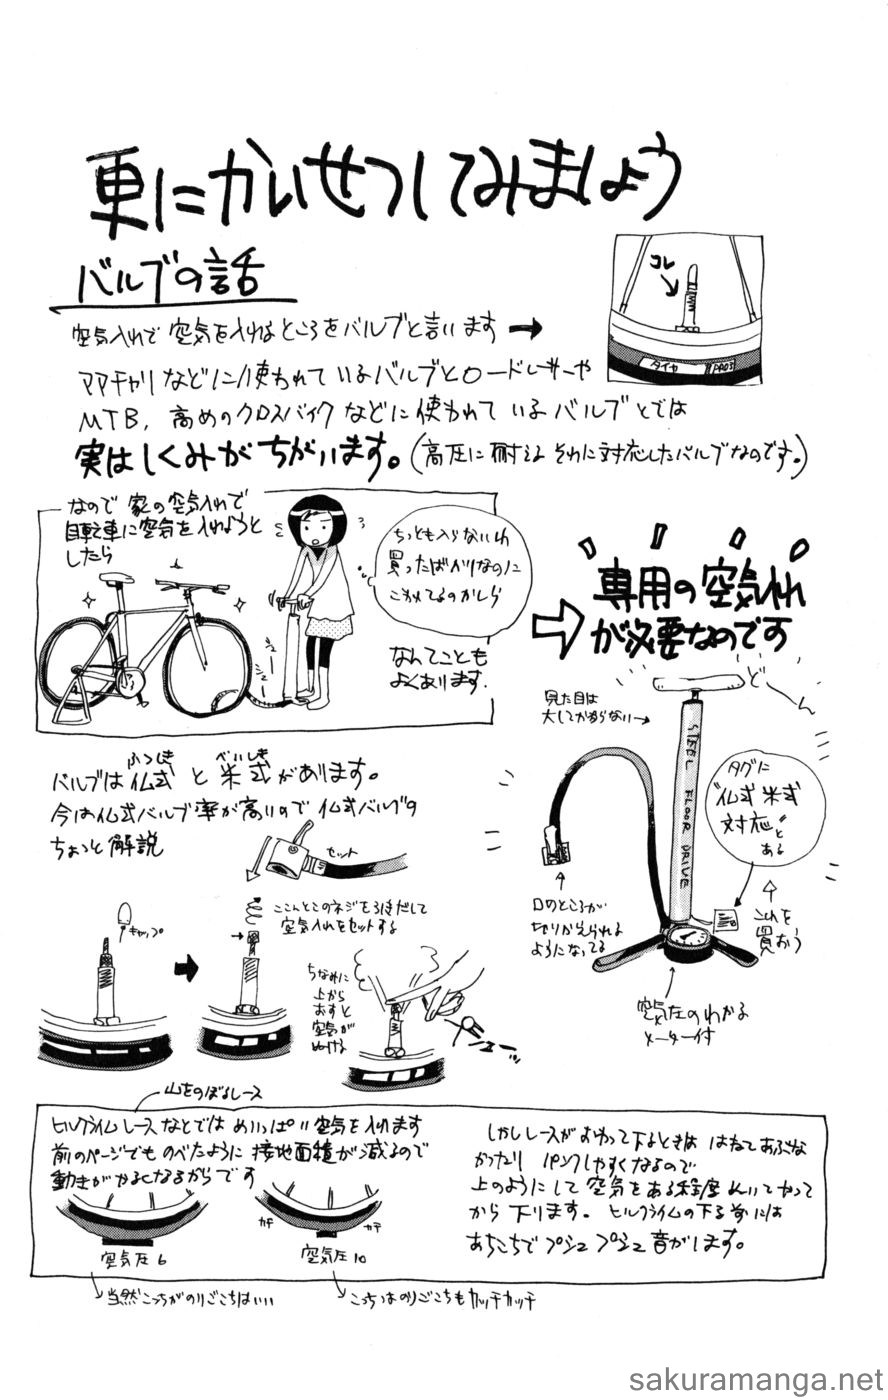 更にかいせつしてみましょう
バルブの話
コレ
タイヤ
空気入れで空気を入れるところをバルブと言います
ママチャリなどに使われているバルブとロードレーサーや
MTB，高めのクロスバイクなどに使われているバルブとでは
実はしくみがちがいます。(高圧に耐えるそれに対応したバルブなのです。)
なので家の空気入れで
自転車に空気を入れようと
したら
ちっとも入らないわ
買ったばかりなのに
こわれてるのかしら
なんてことも
よくあります.
専用の空気入れ
が必要なのです
見た目は
大してかわらない
どーん
STEEL FLOOR DRIVE
タグに
"仏式米式
対応"と
ある
これを
買おう
口のところが
切りかえられる
ようになってる
空気圧のわかる
メーター付
バルブは仏式と米式があります。
ふつしき
べいしき
今は仏式バルブ率が高いので仏式バルブの
ちょっと解説
セット
キャップ
ここんとこのネジをうきだして
空気入れをセットする
ちなみに
上から
おすと
空気が
ぬける
山をのぼるレース
ヒルクライムレースなどではめいっぱい空気を入れます
前のページでものべたように接地面積が減るので
動きがかるくなるからです
空気圧6
カチ
カチ
空気圧10
当然こっちがのりごこちはいい
こっちはのりごこちもカッチカッチ
しかしレースがおわって下るときははねてあぶな
かったりパンクしやすくなるので
上のようにして空気をある程度ぬいてやって
から下ります。ヒルクライムの下る前には
あちこちでプシュプシュ音がします。
sakuramanga.net